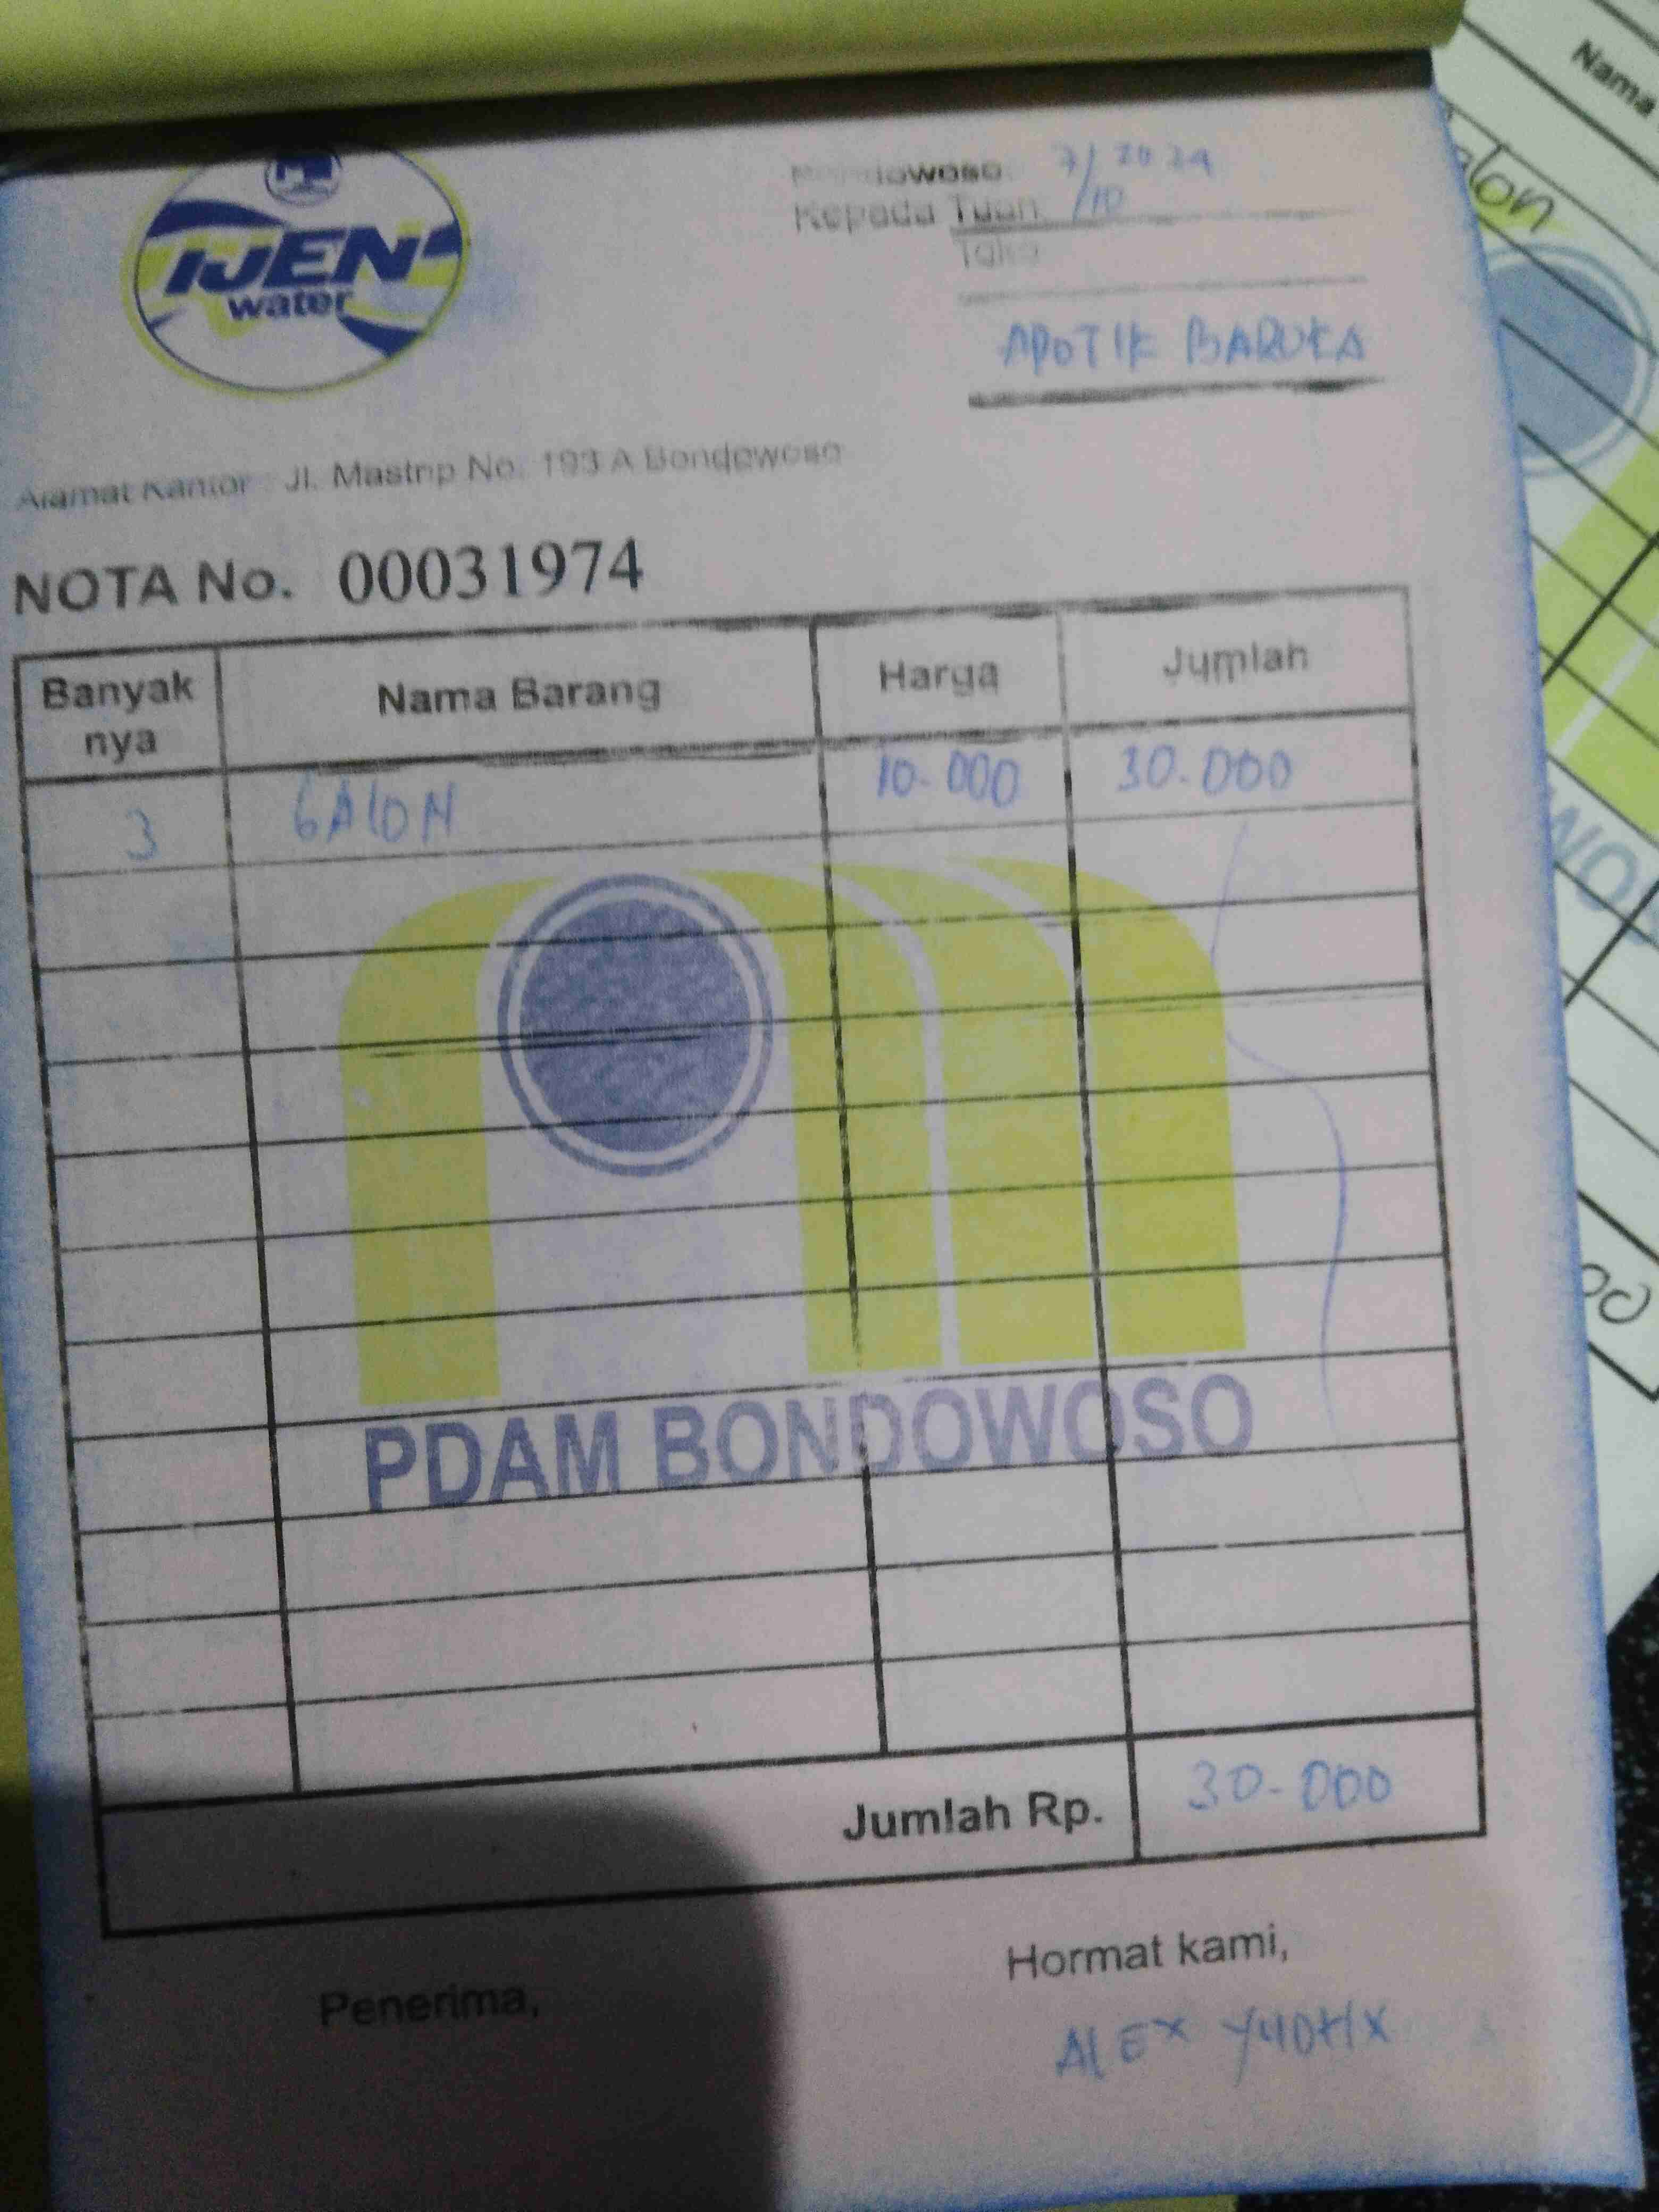 IJEN
water
Bondowoso 7/10 2024
Kepada Tuan
Toko
APOTIK BARUKA
Alamat Kantor : Jl. Mastrip No. 193 A Bondowoso
NOTA No. 00031974
Banyak nya Nama Barang Harga Jumlah
3 GALON 10.000 30.000
PDAM BONDOWOSO
Jumlah Rp. 30.000
Penerima, Hormat kami,
ALEX
Nama
alon